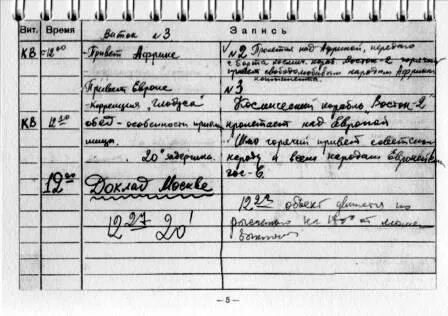 Вит. Время Запись
Виток №3
КВ 12.00 -Привет Африке
√ №2 Пролетая над Африкой, передаю
с борта космич. кораб. Восток-2 горячий
привет свободолюбивым народам Африкан.
континента.
Привет Европе
№3
-Коррекция "глобуса"
Космический корабль Восток-2"
КВ 12.20 обед - особенности приема
пролетает над Европой
пищи.
Шлю горячий привет советском
20' задержка.
народу и всем народам Европейских
гос-в.
12.00 Доклад Москве
12 27 20'
12 27 объект движется
на 180° от
– 5 –